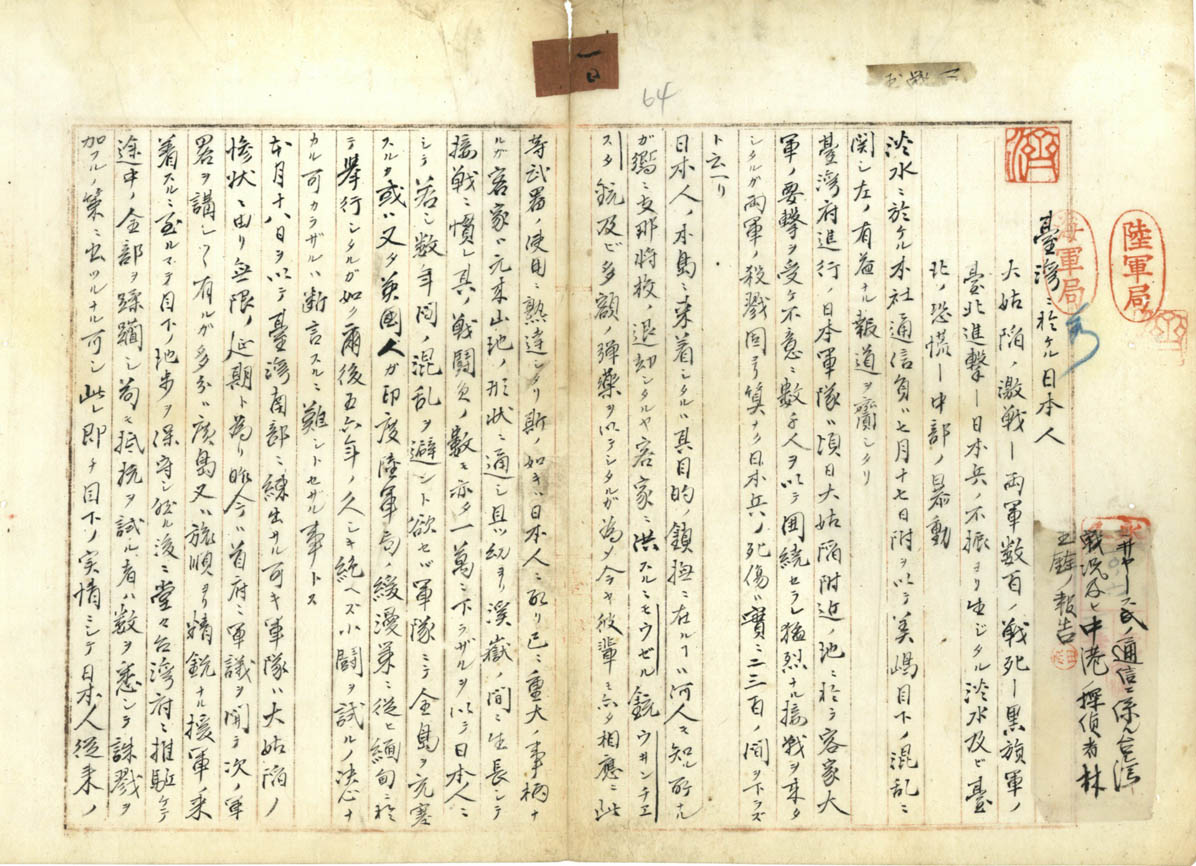 一日
64
陸軍局
海軍局
ース氏ノ通信ニ係ル台湾
戦況及ヒ中港探偵者林
ノ報告
臺湾ニ於ケル日本人
大姑陥ノ激戦ー両軍数百ノ戦死ー黒旗軍ノ
臺北進撃ー日本兵ノ不振ヨリ生ジタル淡水及ビ臺
北ノ恐慌ー中部ノ暴動
淡水ニ於ケル本社通信員ハ七月十七日附ヲ以テ美嶋目下ノ混乱ニ
関シ左ノ有益ナル報道ヲ齎シタリ
臺湾府進行ノ日本軍隊ハ頃日大姑陥附近ノ地ニ於テ客家大
軍ノ要撃ヲ受ケ不意ニ数千人ヲ以テ囲繞セラレ猛烈ナル接戦ヲ来タ
シタルガ両軍ノ殺戮固ヨリ算ナク日本兵ノ死傷ハ實ニ二三百ノ間ヲ下ラズ
ト云ヘリ
日本人ノ本島ニ来着シタルハ其目的ノ鎮撫ニ在ルヿハ何人モ知ル所ナル
ガ嚮ニ支那将校ノ退却シタルヤ客家ニ洪スルニモウゼル銃ウヰンチエ
スタ銃及ビ多額ノ弾藥ヲ以テシタルガ為メ今ヤ彼輩モ亦タ相應ニ此
等武器ノ使用ニ熟達シタリ斯ノ如キハ日本人ニ取リ已ニ重大ノ事柄ナ
ルガ客家ハ元来山地ノ形状ニ通シ且ツ幼ヨリ溪嶽ノ間ニ生長シテ
接戦ニ慣レ其ノ戦闘員ノ數モ亦タ一萬ニ下ラザルヲ以テ日本人ニ
シテ若シ数年間ノ混乱ヲ避ント欲セバ軍隊ニテ全島ヲ充塞
スルカ或ハ又タ英國人ガ印度陸軍局ノ緩漫策ニ從ヒ緬甸ニ於
テ舉行シタルガ如ク爾後五六年ノ久シキ絶ヘズ小闘ヲ試ルノ决心ナ
カル可カラザルハ断言スルニ難シトセザル事トス
本月十八日ヲ以テ臺湾南部ニ練出サル可キ軍隊ハ大姑陥ノ
惨状ニ由リ無限ノ延期ト為リ昨今ハ首府ニ軍議ヲ開テ次ノ軍
畧ヲ講シツヽ有ルガ多分ハ廣島又ハ旅順ヨリ精鋭ナル援軍ノ来
着スルニ至ルマデ目下ノ地歩ヲ保守シ然ル後ニ堂々台湾府ニ推駈ケテ
途中ノ全部ヲ蹂躙シ苟モ抵抗ヲ試ル者ハ数ヲ悉シテ誅戮ヲ
加フルノ策ニ出ツルナル可シ此レ即チ目下ノ実情ニシテ日本人從来ノ